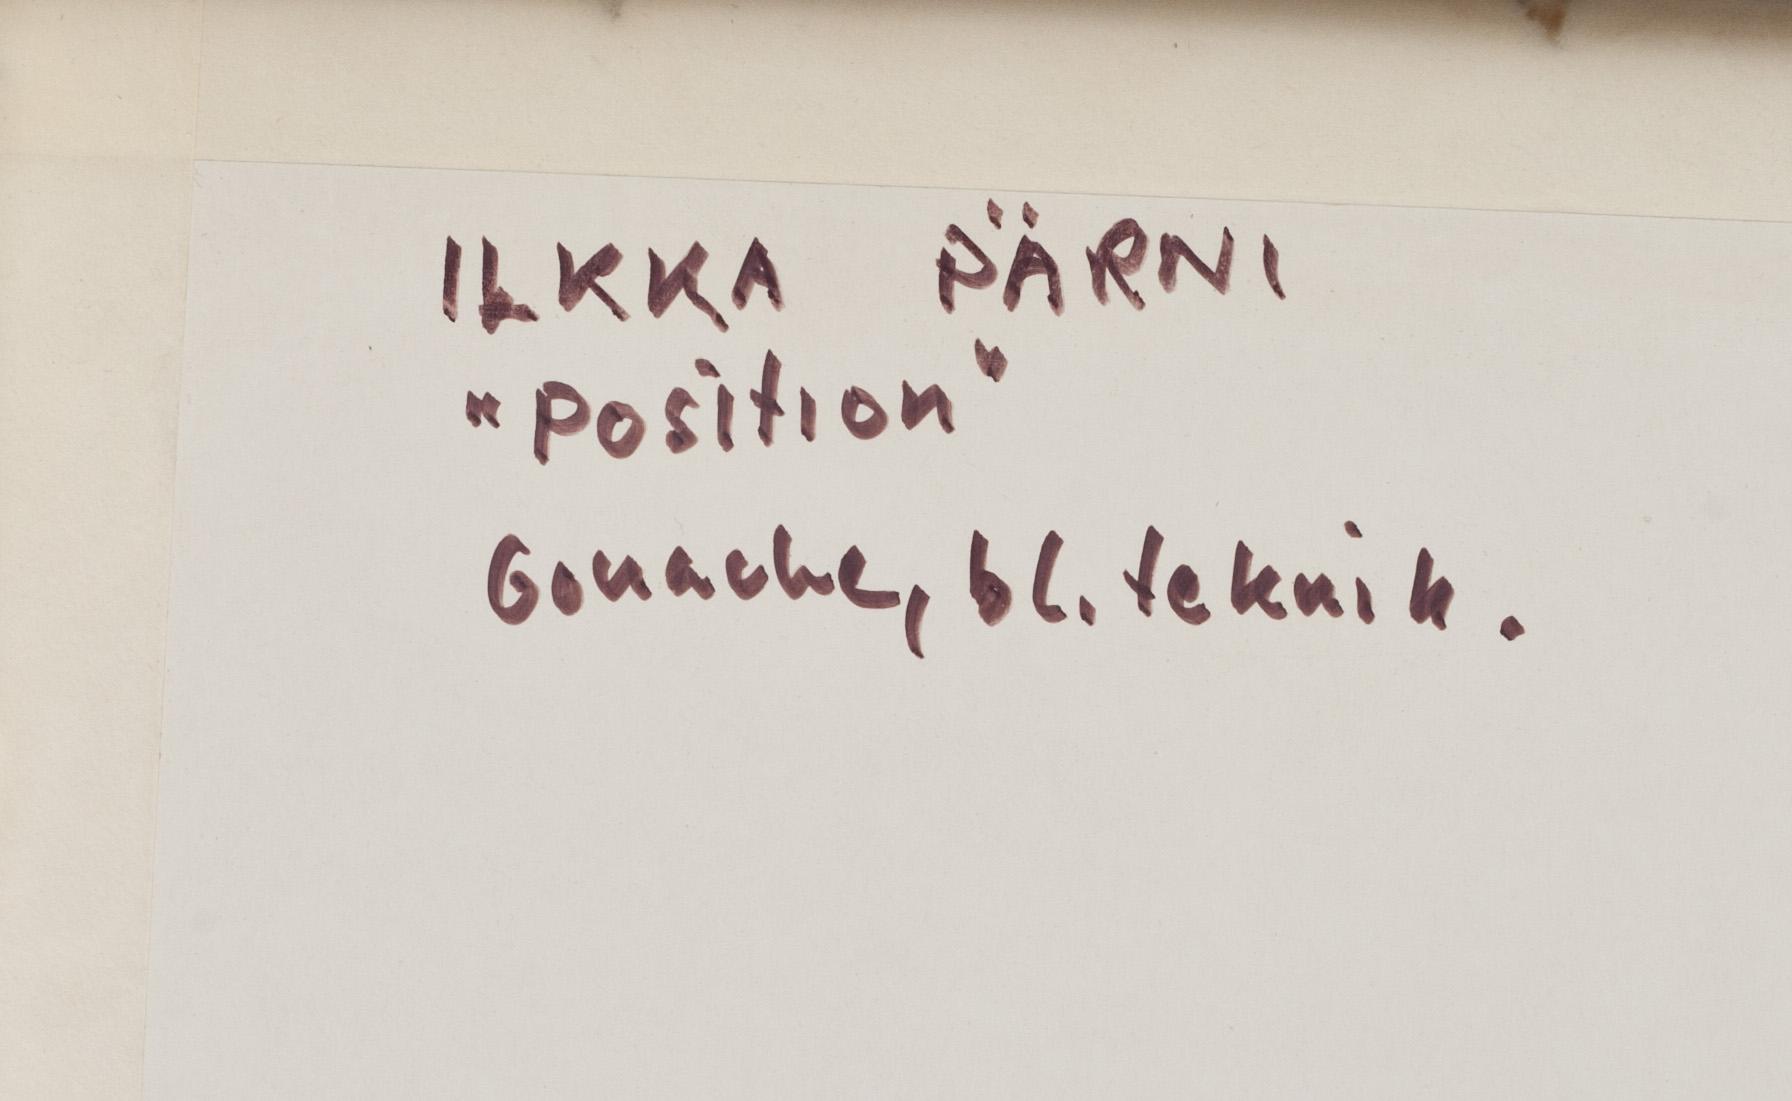 ILKKA PÄRNI
"Position"
Gouache, bl. teknik.